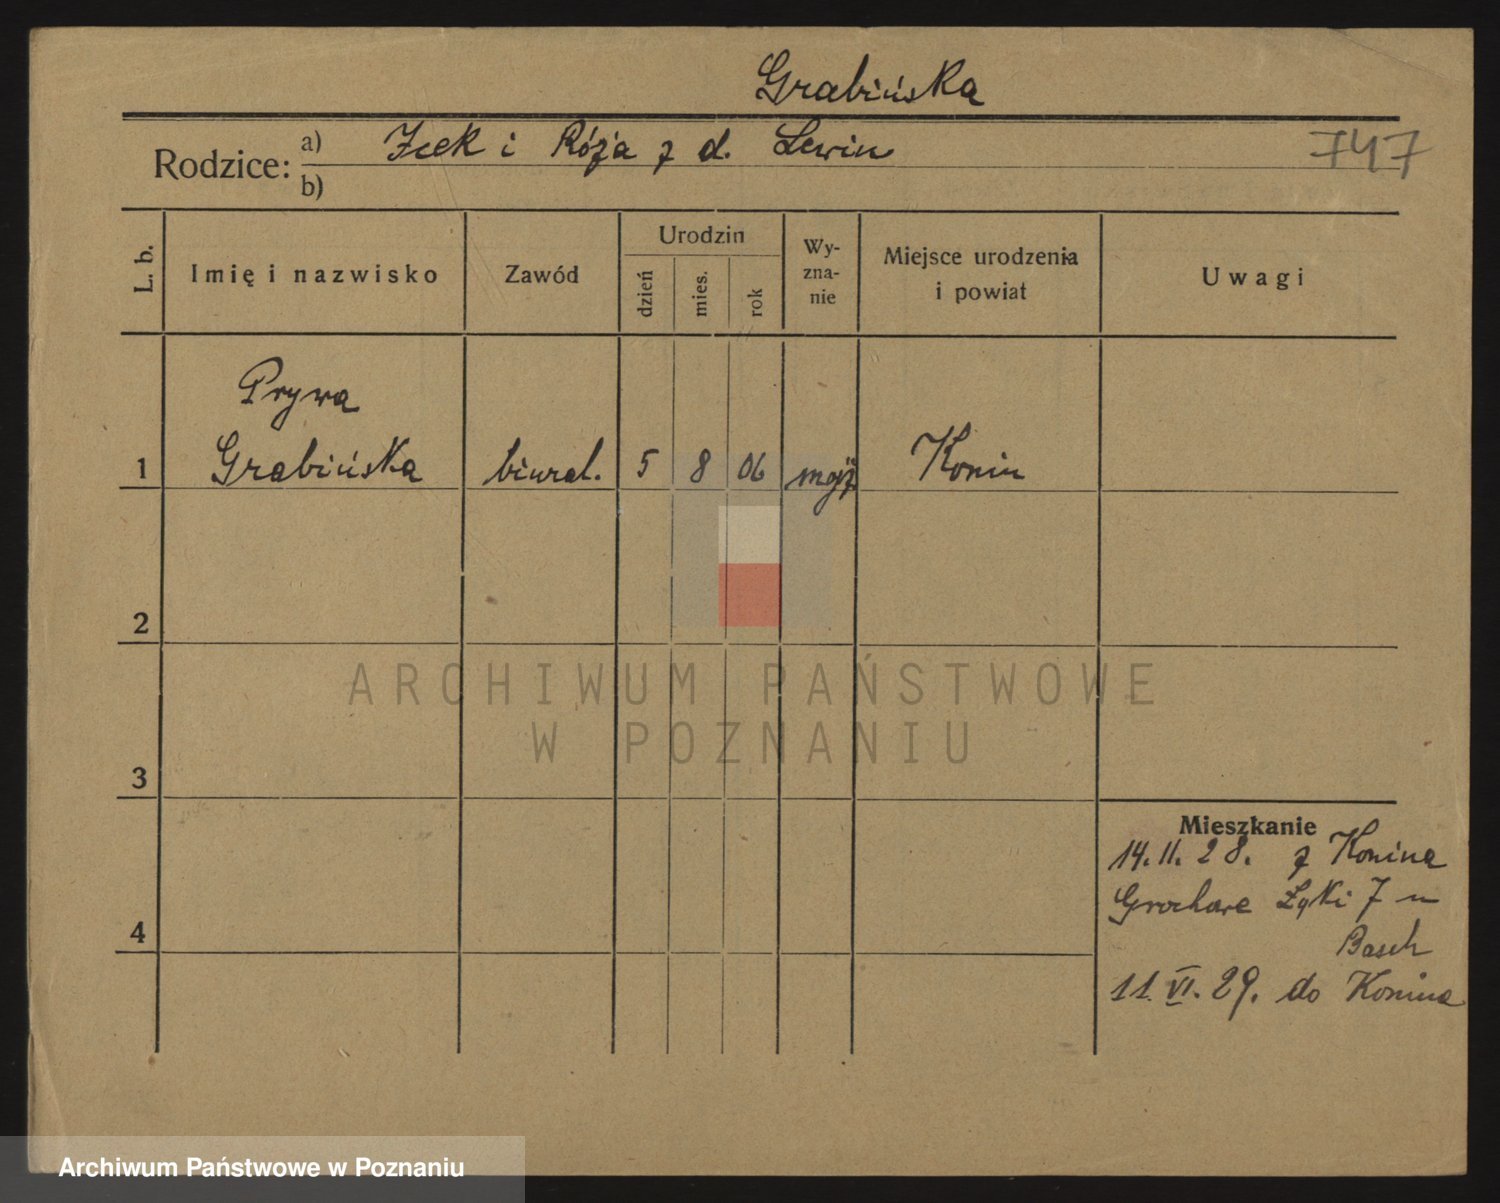 Grabińska
Rodzice:
a) Icek i Róża z d. Lewin
747
b)
L. b.
Imię i nazwisko
Zawód
Urodzin
dzień
mies.
rok
Wy-
zna-
nie
Miejsce urodzenia
i powiat
Uwagi
Prywa
1 Grabińska biural. 5 8 06 mojż Konin
2
3
4
Mieszkanie
14.11.28. z Konina
Grochowe Łąki 7 u
Basch
11.VI.29. do Konina
ARCHIWUM PAŃSTWOWE
W POZNANIU
Archiwum Państwowe w Poznaniu